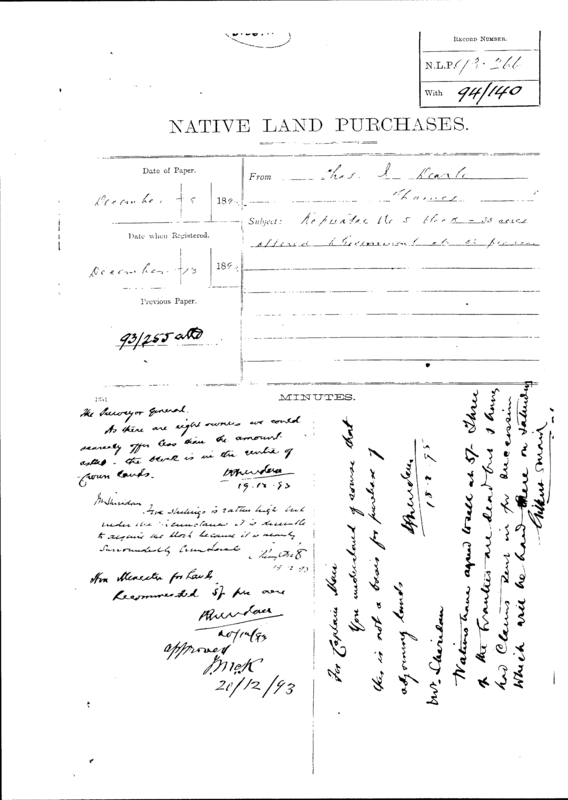 RECORD NUMBER.
N.L.P. 93-266
With 94/140
NATIVE LAND PURCHASES.
Date of Paper.
December 5 189
Date when Registered.
December 13 189
Previous Paper.
93/255 attd
From Chas. J Dearle
Thames
Subject: No 5 block - 33 acres
offered to Government at
MINUTES.
The Surveyor General.
As there are eight owners we could
scarcely offer less than the amount
asked. The block is in the centre of
Crown lands.
P Sheridan
19.12.93
Mr Sheridan
Five shillings is rather high but
under the circumstances it is desirable
to acquire the block because it is nearly
surrounded by Crown land
Hon Minister for Lands
Recommended 5/ per acre
P Sheridan
20/12/93
approved
J McK
20/12/93
For Captain Mair
You understand of course that
this is not a basis for purchase of
adjoining lands
P Sheridan
13.2.95
Mr. Sheridan
Natives have agreed to sell at 5/. Three
of the Grantees are dead but I have
had Claims sent in for Succession
which will be heard there on Saturday
Gilbert Mair